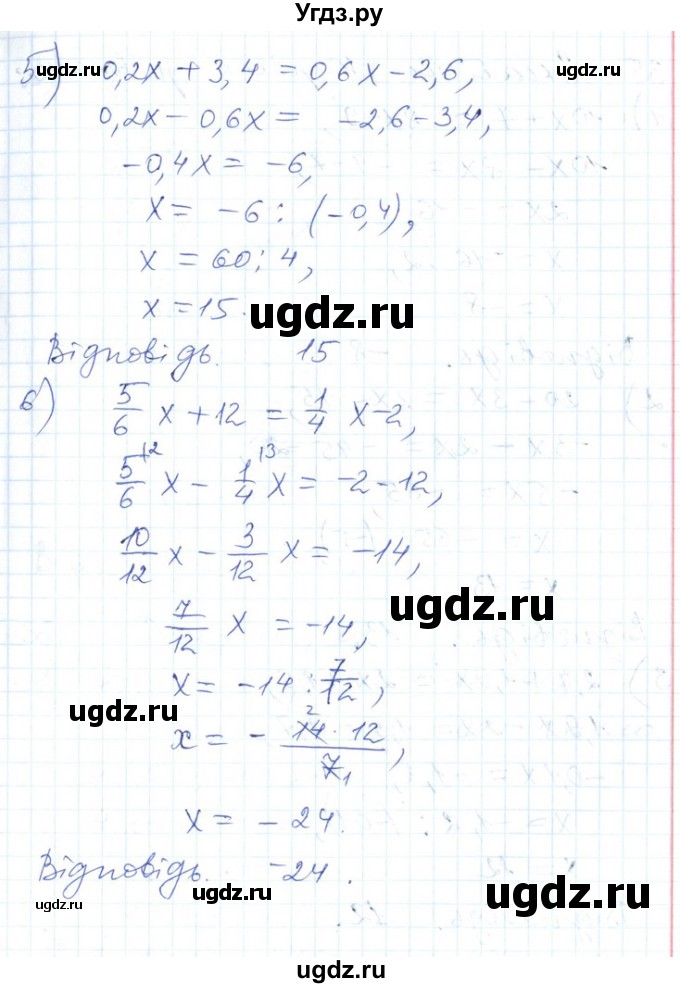 Угдз.ру
5) 0,2x + 3,4 = 0,6x - 2,6,
ugdz.ru ugdz.ru ugdz.ru
0,2x - 0,6x = -2,6 - 3,4,
-0,4x = -6,
x = -6 : (-0,4),
x = 60 : 4,
x = 15.
ugdz.ru ugdz.ru
Відповідь. 15
6) 5/6 x + 12 = 1/4 x - 2,
5/6 |2 x - 1/4 |3 x = -2 - 12,
10/12 x - 3/12 x = -14,
ugdz.ru
7/12 x = -14,
x = -14 : 7/12,
ugdz.ru
x = - 14 2 · 12 / 7 1,
x = -24.
Відповідь. -24.
ugdz.ru ugdz.ru ugdz.ru
ugdz.ru